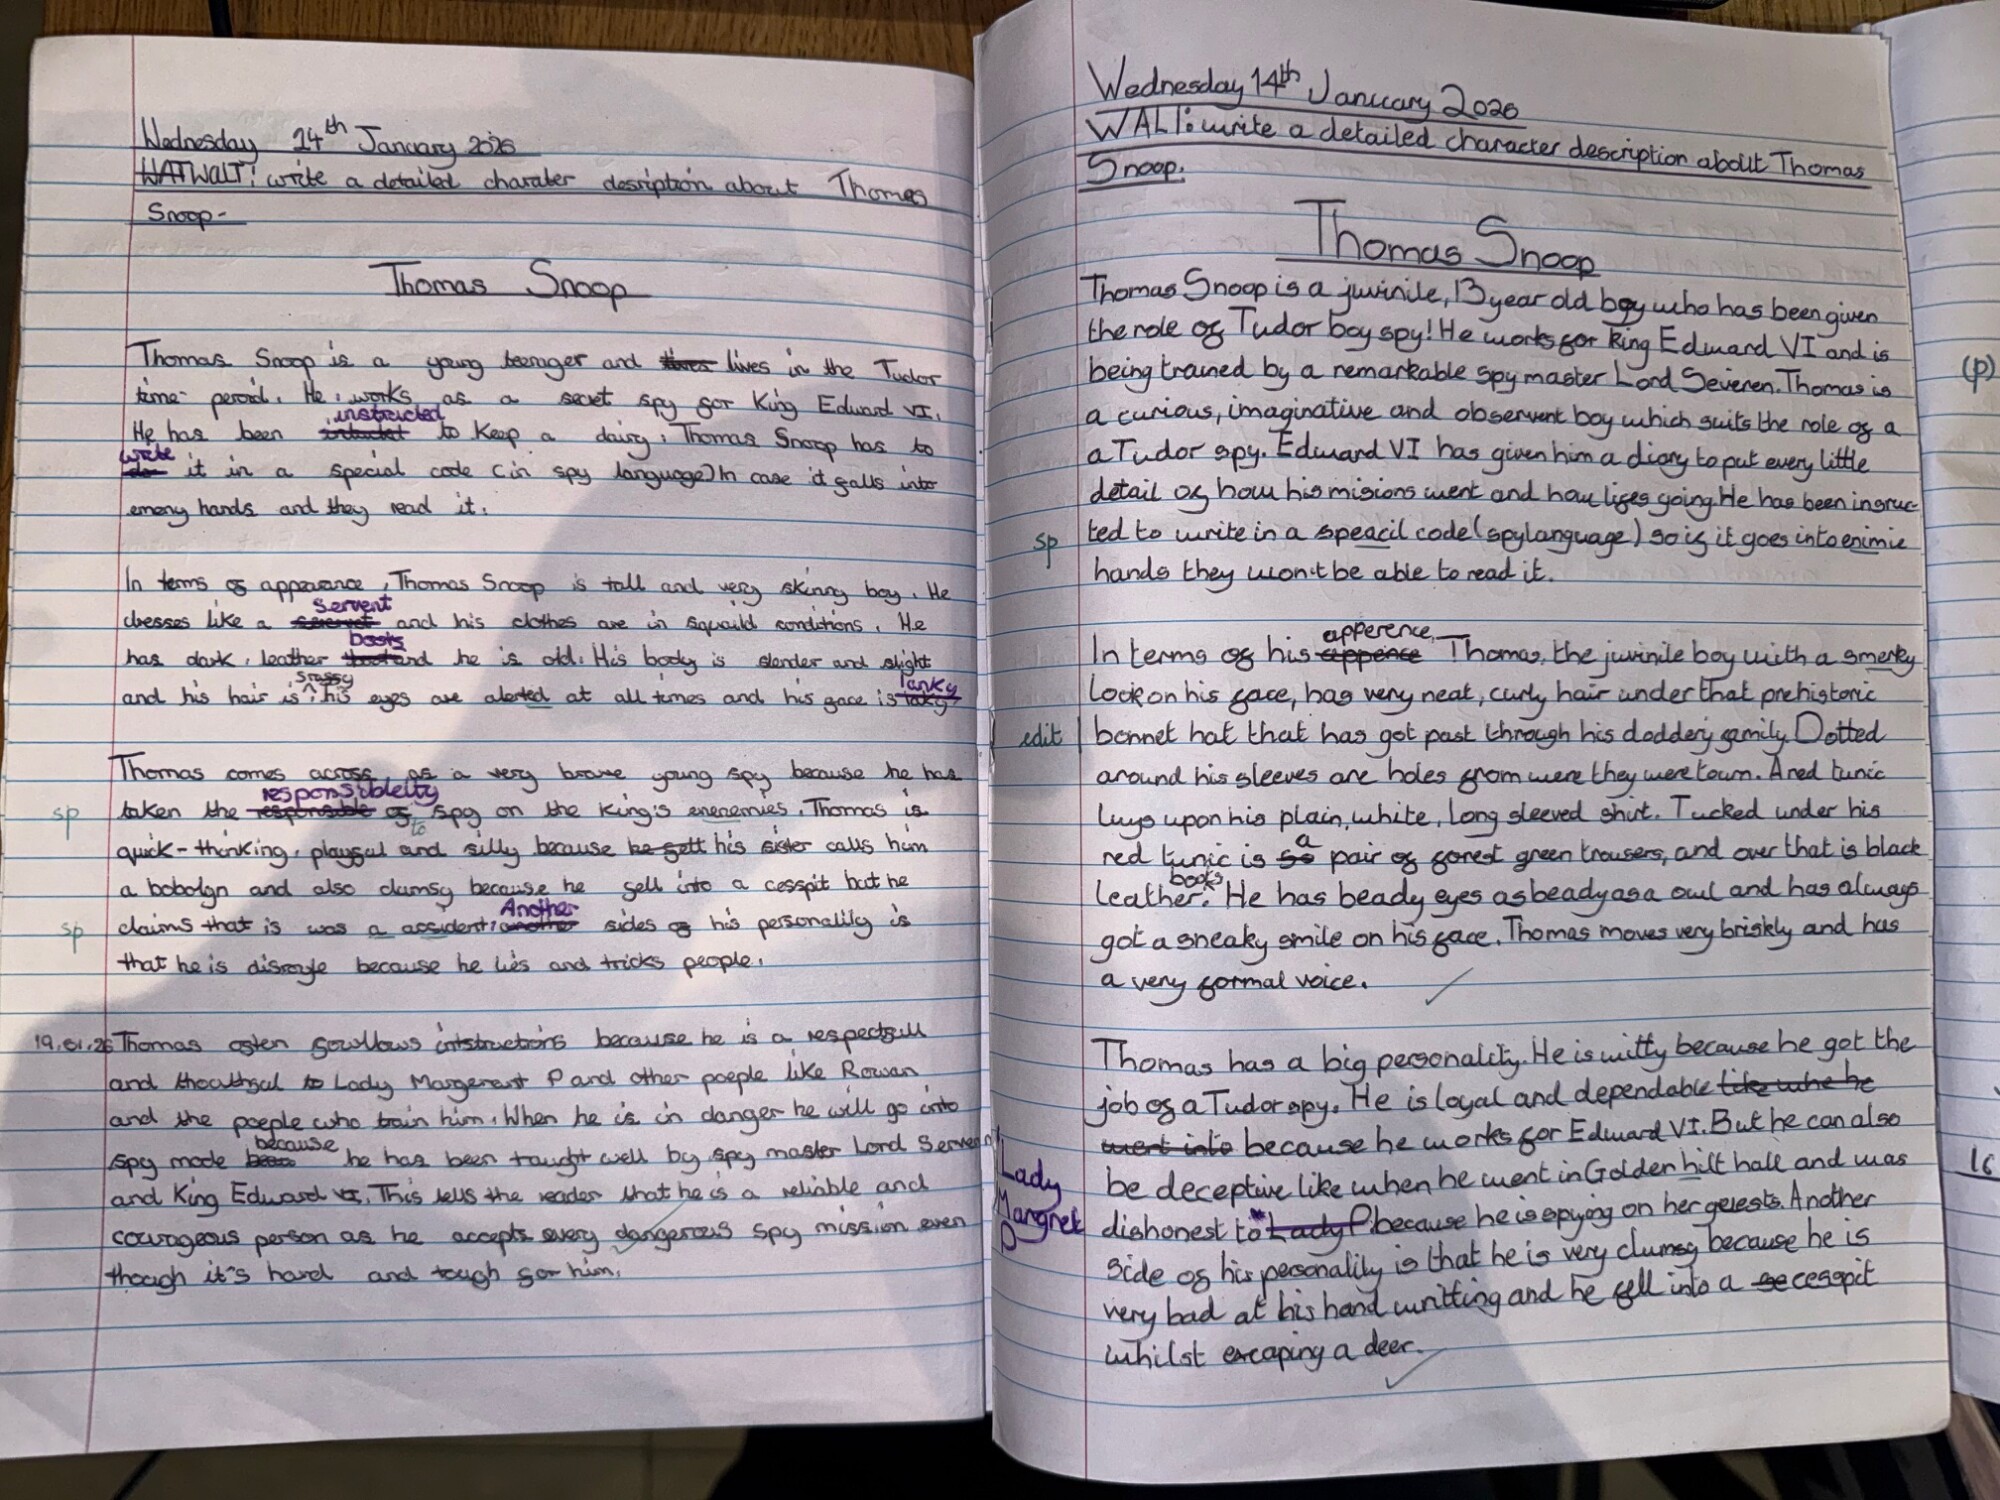 Wednesday 14th January 2026
WALT: write a detailed charater desription about Thomas
Snoop-
Thomas Snoop
Thomas Snoop is a young teenager and lives in the Tudor
time- peroid. He works as a secret spy for King Edward VI.
instructed
He has been to Keep a dairy. Thomas Snoop has to
write
it in a special code (in spy language) In case it falls into
emeny hands and they read it.
In terms of apperance, Thomas Snoop is tall and very skinny boy. He
servent
dresses like a and his clothes are in squaild conditions. He
boots
has dark, leather and he is old. His body is slender and slight
lanky
and his hair is his eyes are alerted at all times and his face is
Thomas comes across as a very brave young spy because he has
responsibleity
sp
taken the of spy on the King's enenemies. Thomas is
to
quick-thinking, playful and silly because his sister calls him
a bobolgn and also clumsy because he fell into a cesspit but he
Another
sp
claims that is was a assident. sides of his personality is
that he is disroyle because he lies and tricks people.
19.01.26 Thomas often fowllows intstructions because he is a respectfull
and thouthful to Lady Margerent P and other poeple like Rowan
and the poeple who train him. When he is in danger he will go into
because
spy mode he has been taught well by spy master Lord Serveren
and King Edward VI. This tells the reader that he is a reliable and
courageous person as he accepts every dangerous spy mission even
though it's hard and tough for him.
Wednesday 14th January 2026
WALT: write a detailed character description about Thomas
Snoop.
Thomas Snoop
Thomas Snoop is a juvinile, 13 year old boy who has been given
the role of Tudor boy spy! He works for King Edward VI and is
being trained by a remarkable spy master Lord Severen. Thomas is
a curious, imaginative and observent boy which suits the role of a
a Tudor spy. Edward VI has given him a diary to put every little
detail of how his misions went and how lifes going. He has been insruc-
sp
ted to write in a speacil code (spy language) so if it goes into enimie
hands they won't be able to read it.
apperence,
In terms of his appence Thomas, the juvinile boy with a smerky
look on his face, has very neat, curly hair under that prehistoric
edit
bonnet hat that has got past through his doddery family. Dotted
around his sleeves are holes from were they were town. A red tunic
luys upon his plain, white, long sleeved shirt. Tucked under his
a
red tunic is so pair of forest green trousers, and over that is black
boots
leather. He has beady eyes as beady as a owl and has always
got a sneaky smile on his face. Thomas moves very briskly and has
a very formal voice.
Thomas has a big personality. He is witty because he got the
job of a Tudor spy. He is loyal and dependable like whe he
went into because he works for Edward VI. But he can also
be deceptive like when he went in Golden hilt hall and was
Lady
Mangret
P
dishonest to Lady P. because he is spying on her geuests. Another
side of his personality is that he is very clumsy because he is
very bad at his hand writting and he fell into a se cesspit
whilst excaping a deer.
(p)
16